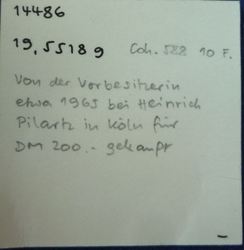 14486
19,5518 g Coh. 588 10 F.
Von der Vorbesitzerin
etwa 1965 bei Heinrich
Pilartz in Köln für
DM 200.- gekauft